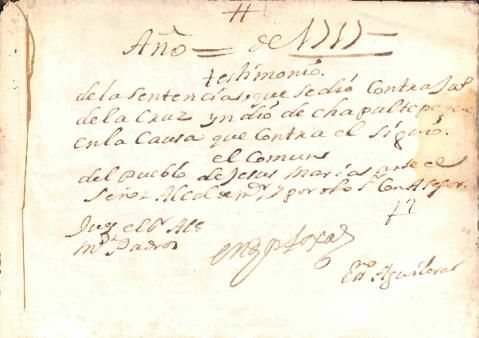 Año de 1717
testimonio.
de la sentencia, que se dió Contra Jul
de la Cruz yndio de chapultepeque
en la Causa que Contra el siguió.
el Comun
del Pueblo de Jesus Marias, ante el
Señor Alcalde mor y por dho Sr Con Asesor.
Juez el Sr Alc
mr Padron
Essno Aguilera